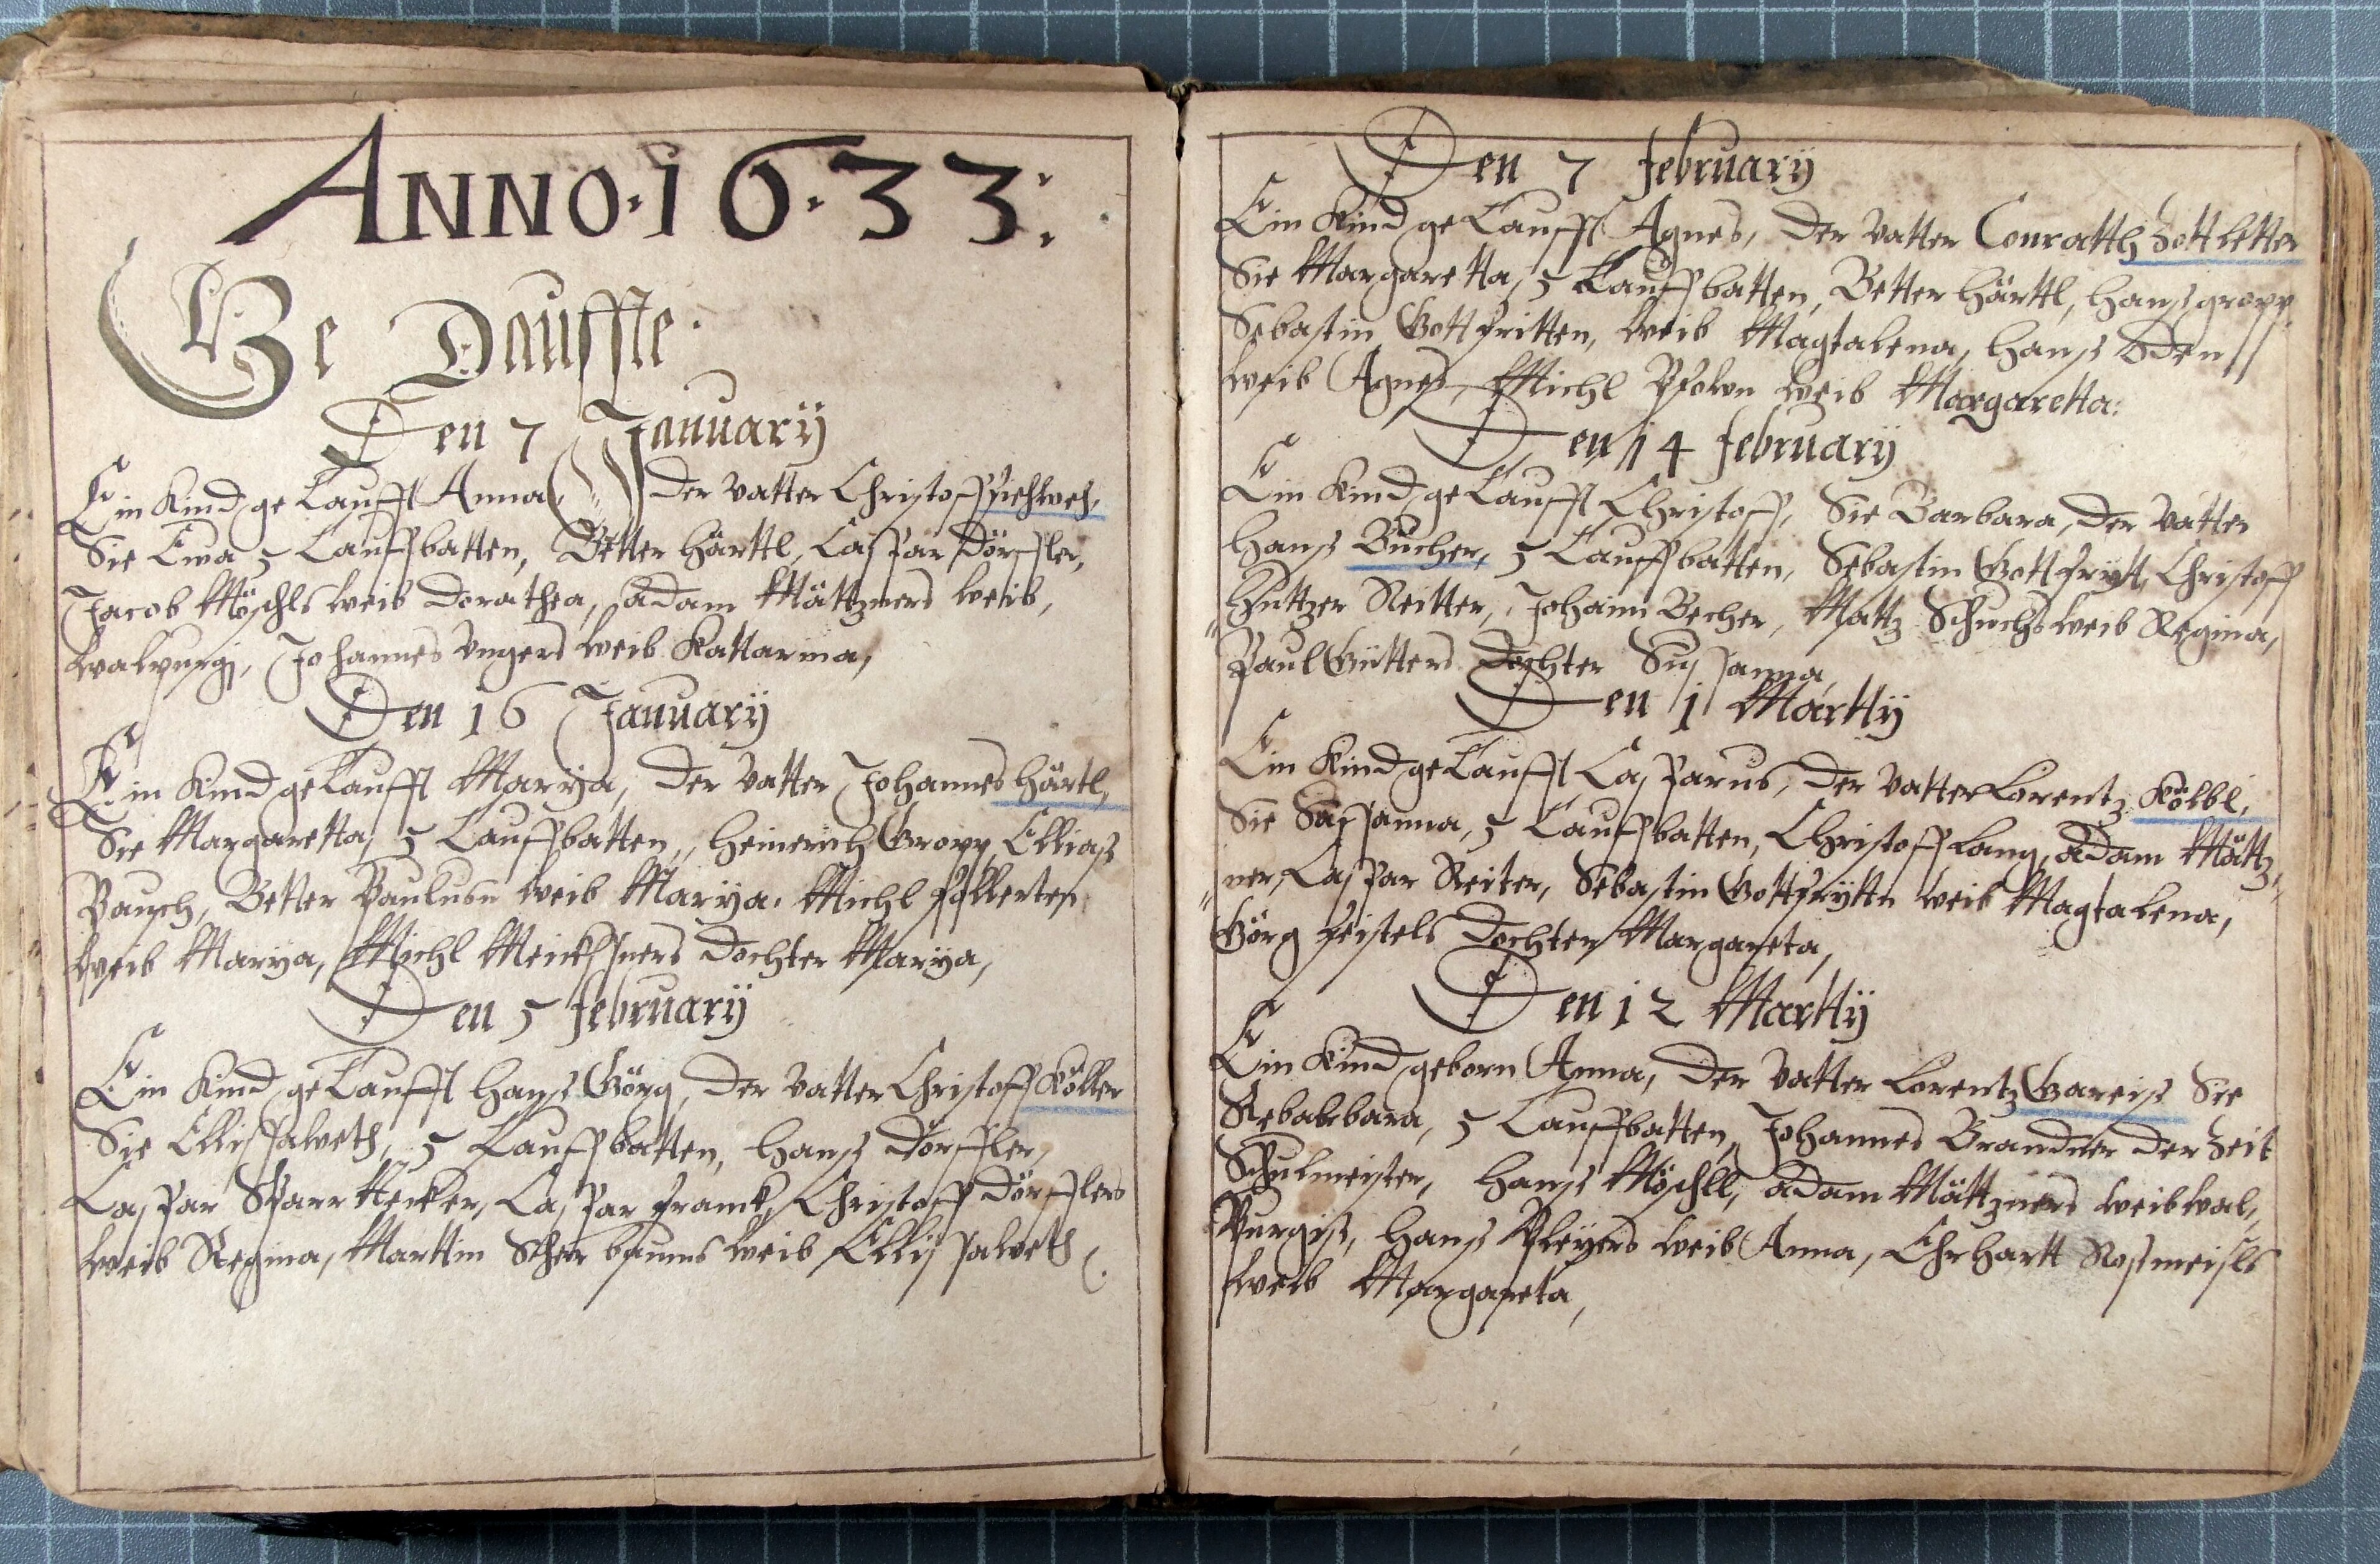 ANNO·16·33:
Ge Dauffte·
Den 7 January
Ein Kind getaufft Anna, Der vatter Christoff
Sie Eva 5 tauffbatten, Better Härttl, Caspar Dörffler,
Jacob Möschls weib Dorathea, Adam Mättzners weib,
walpurg, Johannes Ungers weib Kattarina,
Den 16 January
Ein Kind getaufft Marÿa, Der vatter Johannes Härtl,
Sie Margaretta, 5 tauffbatten, Heinerich Gropp, Ellias
Bausch, Better Paulusn weib Marÿa. Michl
weib Marÿa, Michl Meichsners Dochter Marÿa,
Den 5 february
Ein Kind getaufft Hanß Görg, Der vatter Christoff Köller
Sie Ellissabeth, 5 tauffbatten, Hanß Dörffler,
Caspar Sparr Hecker, Caspar franck, Christoff Dörfflers
weib Regina, Marttin Scherbaums weib Ellissabeth
Den 7 february
Ein Kind getaufft Agnes, Der vatter Conratth Zottletter
Sie Margaretta, 5 tauffbatten, Better Härttl, Hanß gropp
Sebastin Gottfritten, weib Magtalena, Hanß Öden
weib Agnes, Michl weib Margaretta:
Den 14 february
Ein Kind getaufft Christoff, Sie Barbara, Der vatter
Hanß Bucher, 5 tauffbatten, Sebastin Gottfrÿtt, Christoff
Reitter, Johann Becher, Mattz Schuchs weib Regina,
Paul Gütters Dochter Sussanna,
Den 1 Marttÿ
Ein Kind getaufft Casparus, Der vatter Lorentz Kölbl,
Sie Sussanna, 5 tauffbatten, Christoff Lang, Adam Mättz,
ner, Caspar Reiter, Sebastin Gottfrÿttn weib Magtalena,
Görg feistels Dochter Margareta,
Den 12 Marttÿ
Ein Kind geborn Anna, Der vatter Lorentz Gareiß Sie
5 tauffbatten, Johannes Brandner der Zeit
Schulmeister, Hanß Möschll, Adam Mättzners weib wal,
Purgiß, Hanß Pleÿers weib Anna, Ehrhartt Rosmeisls
weib Margareta,